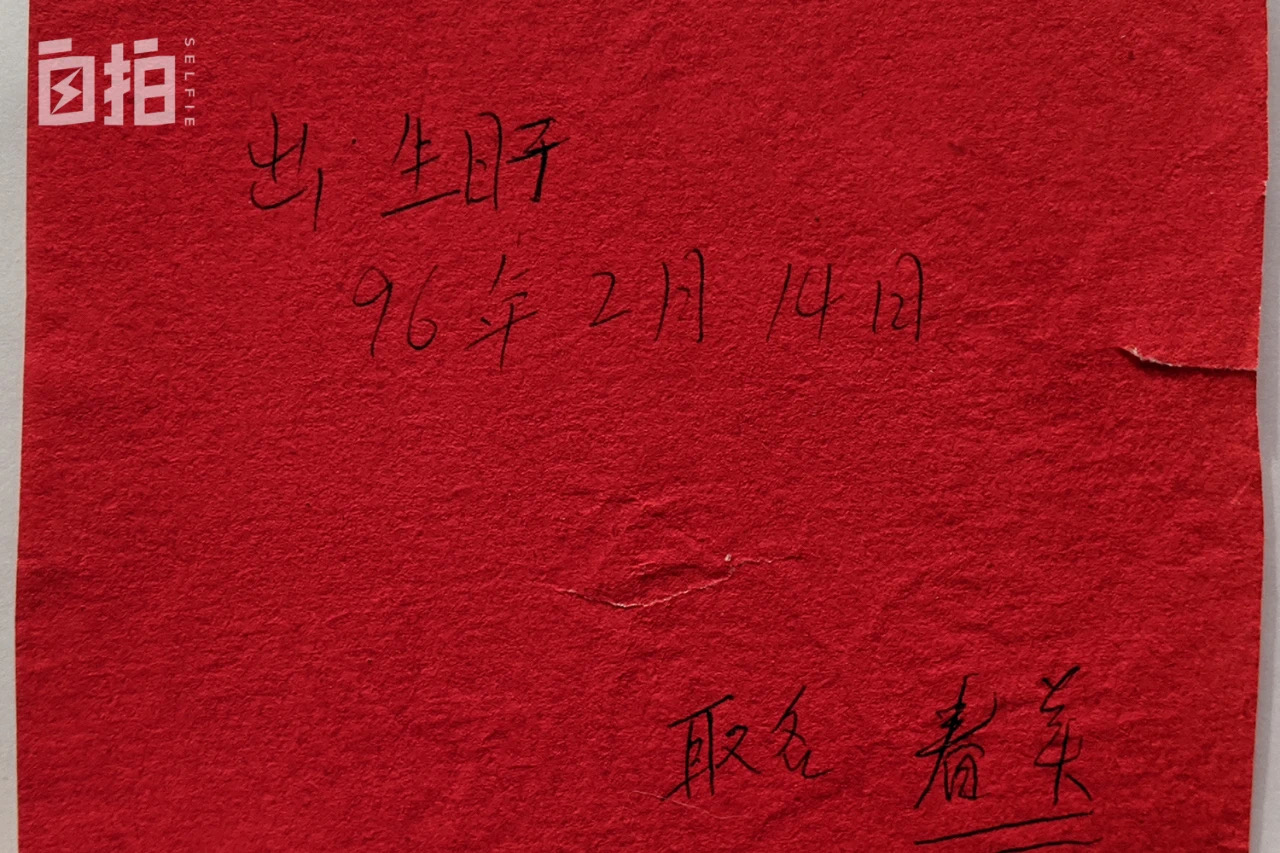 自拍
SELFIE
出生日子
96年2月14日
取名 春美